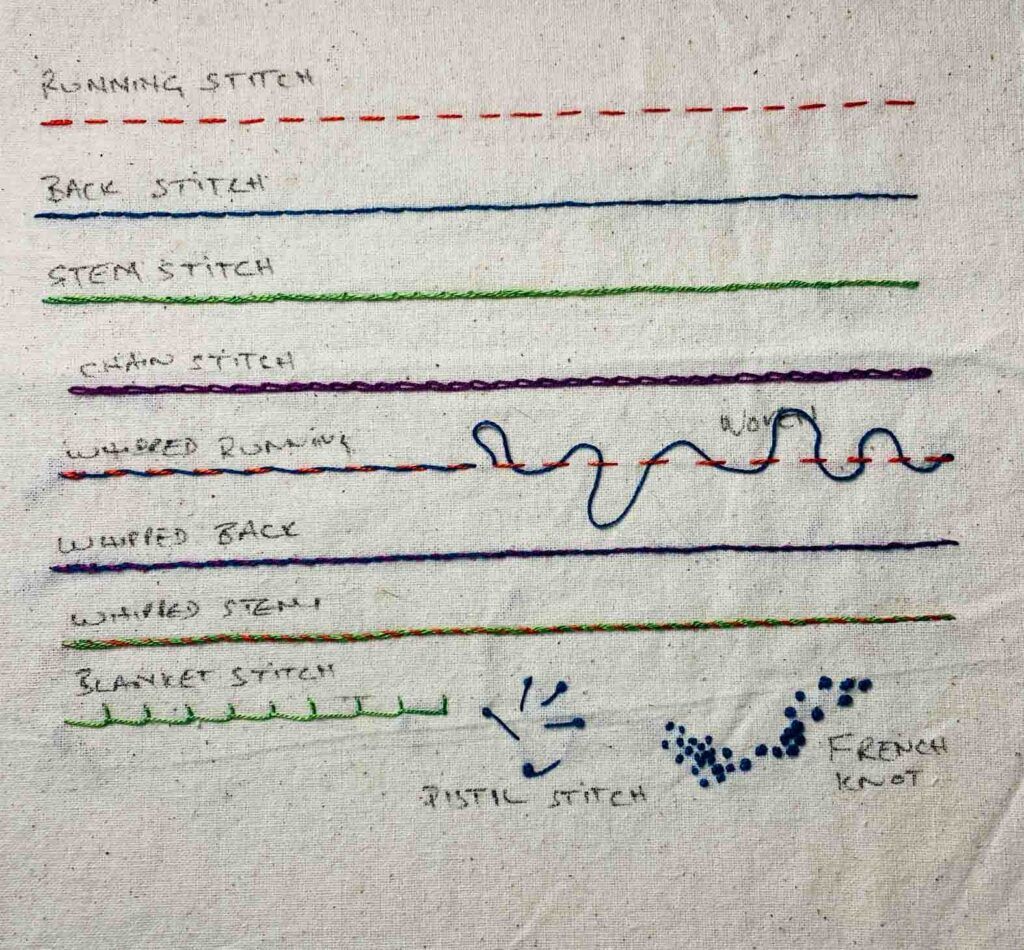 RUNNING STITCH
BACK STITCH
STEM STITCH
CHAIN STITCH
WHIPPED RUNNING
WOVEN
WHIPPED BACK
WHIPPED STEM
BLANKET STITCH
PISTIL STITCH
FRENCH
KNOT